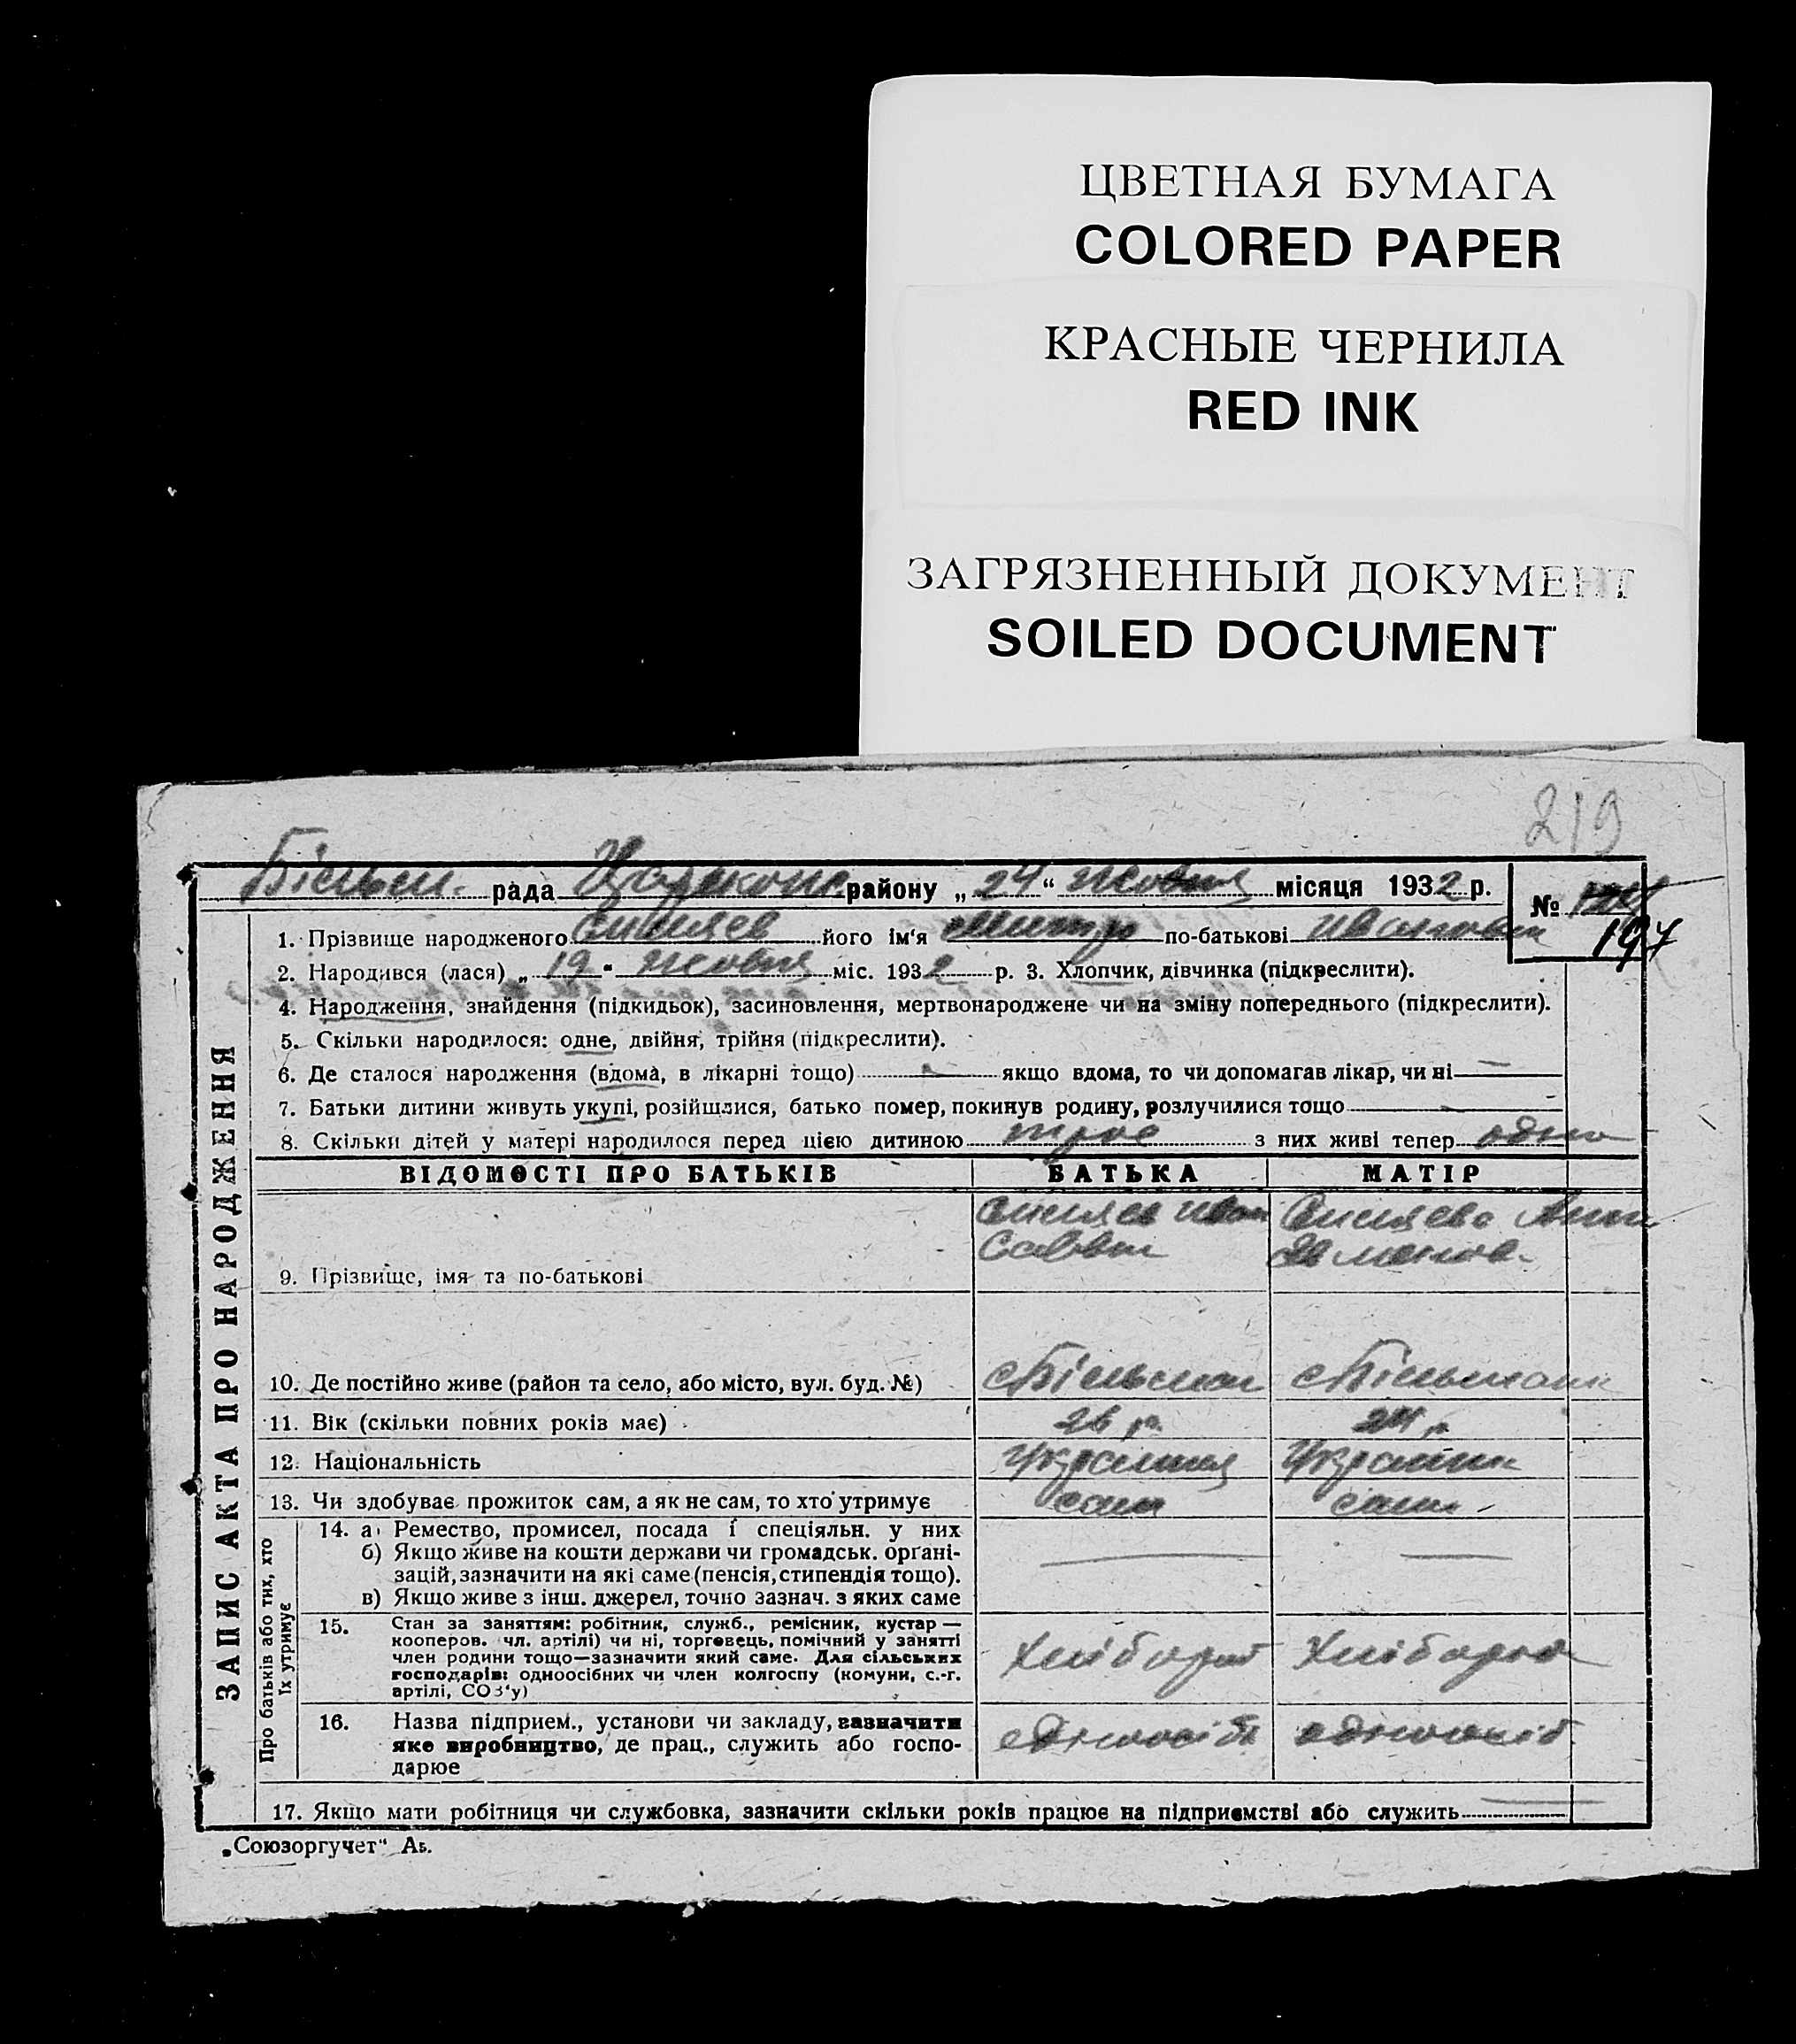 ЦВЕТНАЯ БУМАГА
COLORED PAPER
КРАСНЫЕ ЧЕРНИЛА
RED INK
ЗАГРЯЗНЕННЫЙ ДОКУМЕНТ
SOILED DOCUMENT
219
рада району „ 24 “ жовтня місяця 1932 р.
№
197
1. Прізвище народженого його ім'я по-батькові Иванович
2. Народився (лася) „ 19 " жовтня міс. 1932 р. 3. Хлопчик, дівчинка (підкреслити).
4. Народження, знайдення (підкидьок), засиновлення, мертвонароджене чи на зміну попереднього (підкреслити).
5. Скільки народилося: одне, двійня, трійня (підкреслити).
6. Де сталося народження (вдома, в лікарні тощо) якщо вдома, то чи допомагав лікар, чи ні
7. Батьки дитини живуть укупі, розійшлися, батько помер, покинув родину, розлучилися тощо
8. Скільки дітей у матері народилося перед цією дитиною троє з них живі тепер одно
ЗАПИС АКТА ПРО НАРОДЖЕННЯ
ВІДОМОСТІ ПРО БАТЬКІВ БАТЬКА МАТІР
9. Прізвище, імя та по-батькові
10. Де постійно живе (район та село, або місто, вул. буд. №)
11. Вік (скільки повних років має) 26 р. 24 р.
12. Національність
13. Чи здобуває прожиток сам, а як не сам, то хто утримує сам сама
Про батьків або тих, хто
їх утримує
14. а) Ремество, промисел, посада і спеціяльн. у них
б) Якщо живе на кошти держави чи громадськ. органі-
зацій, зазначити на які саме (пенсія, стипендія тощо).
в) Якщо живе з інш. джерел, точно зазнач. з яких саме
15. Стан за заняттям: робітник, служб., ремісник, кустар —
кооперов. чл. артілі) чи ні, торговець, помічний у занятті
член родини тощо—зазначити який саме. Для сільських
господарів: одноосібних чи член колгоспу (комуни, с.-г.
артілі, СОЗ'у)
16. Назва підприєм., установи чи закладу, зазначити
яке виробництво, де прац., служить або госпо-
дарює
одноосіб одноосіб
17. Якщо мати робітниця чи службовка, зазначити скільки років працює на підприємстві або служить
„Союзоргучет“ Аь.